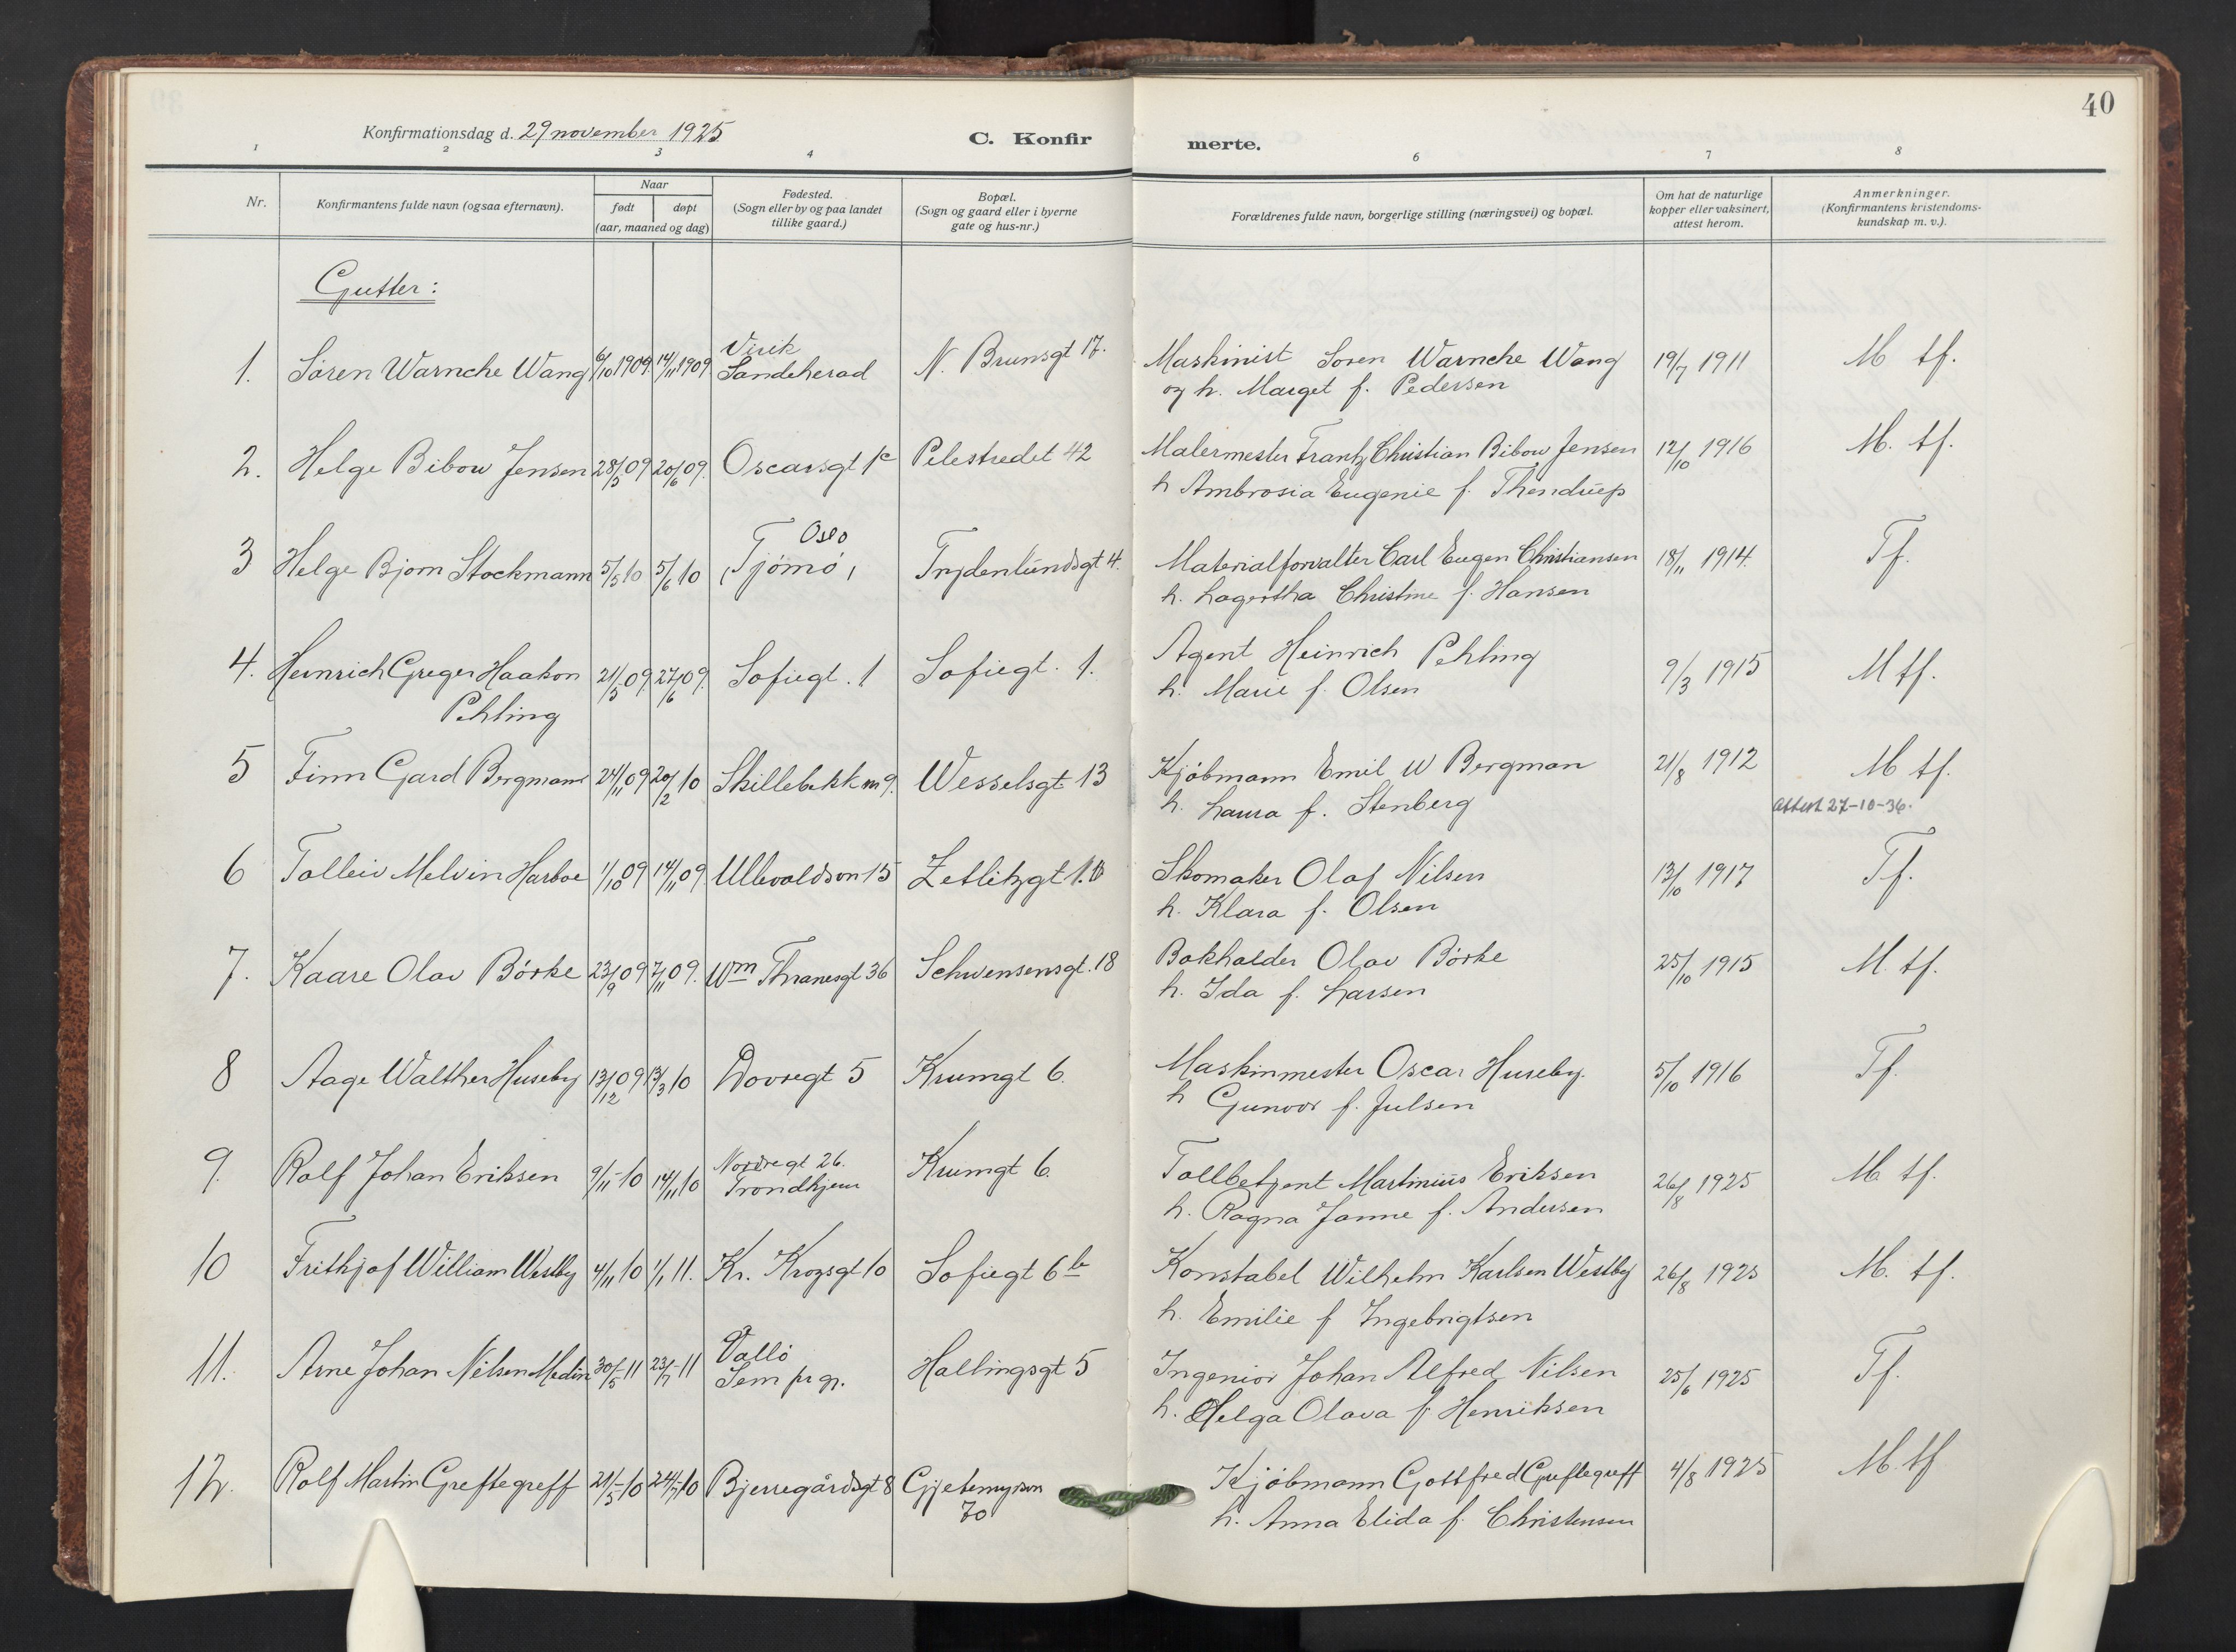 40
Konfirmationsdag d. 29 november 1925
C. Konfir merte.
1 2 3 4 6 7 8
Nr.
Konfirmantens fulde navn (ogsaa efternavn).
Naar
født døpt
(aar, maaned og dag)
Fødested.
(Sogn eller by og paa landet
tillike gaard.)
Bopæl.
(Sogn og gaard eller i byerne
gate og hus-nr.)
Forældrenes fulde navn, borgerlige stilling (næringsvei) og bopæl.
Om hat de naturlige
kopper eller vaksinert,
attest herom.
Anmerkninger.
(Konfirmantens kristendoms-
kundskap m. v.).
Gutter:
Virik
1. Søren Warncke Wang 6/10 1909. 14/11 1909. Sandeherad N. Brunsgt 17. Maskinist Soren Warncke Wang 19/7 1911 M tf.
og h. Marget f. Pedersen
2. Helge Bibow Jensen 28/5 09 20/6 09. Oscarsgt 1c Pilestredet 42 Malermester Frantz Christian Bibow Jensen 12/10 1916 M. tf.
h Ambrosia Eugenie f. Thendrup
Oslo
3 Helge Bjorn Stockmann 5/5 10 5/6 10 (Tjømø) Frydenlundsgt 4. Materialforvalter Carl Eugen Christiansen 18/11 1914. Tf.
h. Lagertha Christine f. Hansen
4. Heinrich Greger Haakon 21/5 09 27/6 09. Sofiegt. 1 Sofiegt. 1. Agent Heinrich Pehling 9/3 1915 M tf.
Pehling h. Marie f. Olsen
5 Finn Gard Bergmann 24/11 09 20/2 10 Skillebekk nr 9. Wesselsgt 13 Kjøbmann Emil W Bergman 21/8 1912 M tf.
h. Laura f. Stenberg attest 27-10-36.
6 Tolleiv Melvin Harboe 1/10 09 14/11 09 Ullevoldsvn 15 Zetlitzgt 1. Skomaker Olaf Nilsen 13/10 1917 Tf.
h. Klara f. Olsen
7. Kaare Olav Børke 23/9 09 7/11 09. Wm Thranesgt 36 Schwensensgt. 18 Bokholder Olav Børke 25/10 1915 M. tf.
h. Ida f. Larsen
8 Aage Walther Huseby 13/12 09 13/3 10 Dovregt 5 Krumgt 6. Maskinmester Oscar Huseby. 5/10 1916 Tf.
h Gunvor f. Julsen
9. Rolf Johan Eriksen 9/11-10 14/11 10 Nordregt 26. Krumgt 6. Tollbetjent Martinius Eriksen 26/8 1925 M. tf.
Trondhjem h. Ragna Janne f. Andersen
10 Frithjof William Westby 4/11 10 1/1 11. Kr. Krogsgt 10 Sofiegt 6b Konstabel Wilhelm Karlsen Westby 26/8 1925 M. tf.
h. Emilie f Ingebrigtsen
Vallø
11. Arne Johan Nilsen Medin 30/5-11 23/7-11 Sem pr gj. Hallingsgt 5 Ingeniør Johan Alfred Nilsen 25/6 1925 Tf.
h. Helga Olava f. Henriksen
12. Rolf Martin Greftegreff 21/5-10 24/7-10 Bjerregårdsgt 8 Gjetemyrsvn Kjøbmann Gottfred Greftegreff 4/8 1925 M. tf
70 h. Anna Elida f. Christensen